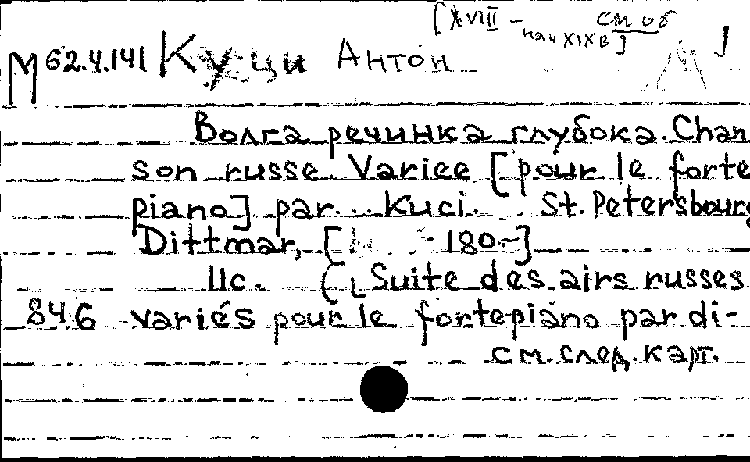 [XVIII – см об
нач XIX в]
M 62.4.141 Куци Антон
Волга речинка глубока. Chan
son russe. Variee [pour le forte
piano] par ... Kuci. St. Petersbourg
Dittmar, [180-]
11с. (Suite des airs russes
846 variés pour le fortepiano par di-
см. след. карт.